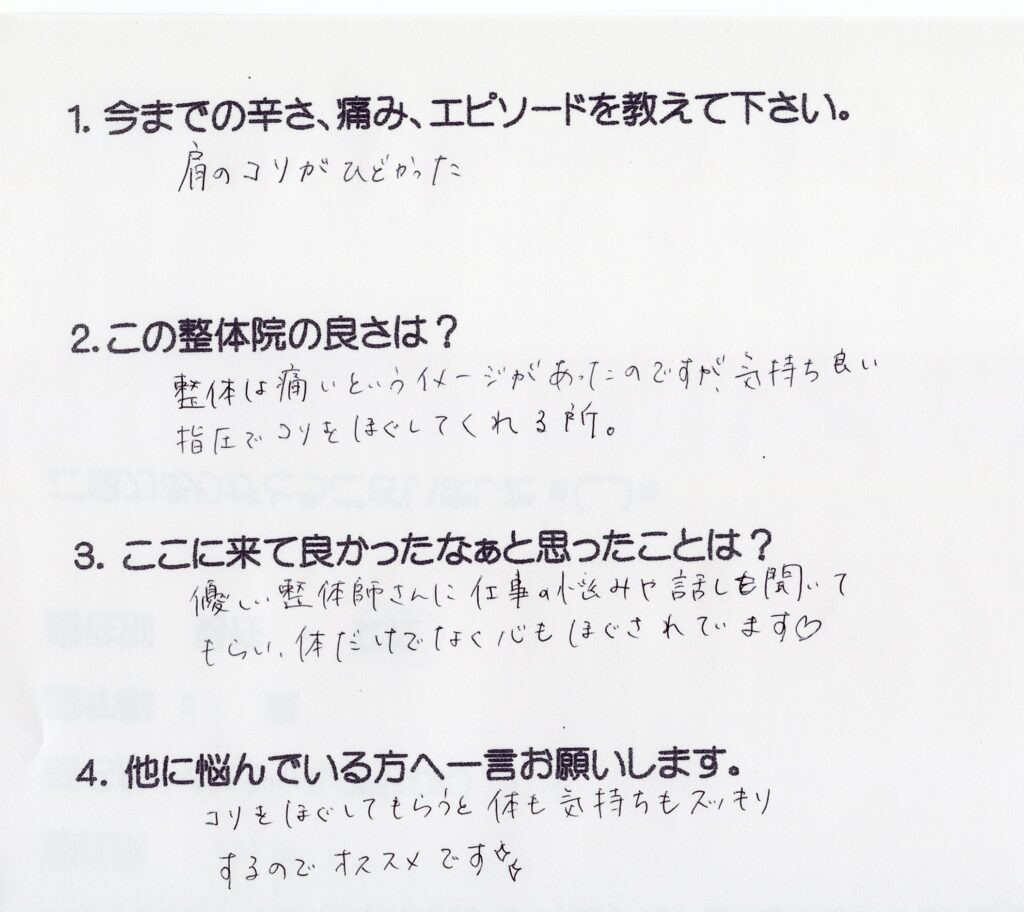 1. 今までの辛さ、痛み、エピソードを教えて下さい。
肩のコリがひどかった
2. この整体院の良さは？
整体は痛いというイメージがあったのですが、気持ち良い
指圧でコリをほぐしてくれる所。
3. ここに来て良かったなぁと思ったことは？
優しい整体師さんに仕事の悩みや話しも聞いて
もらい、体だけでなく心もほぐされています♡
4. 他に悩んでいる方へ一言お願いします。
コリをほぐしてもらうと体も気持ちもスッキリ
するのでオススメです✧✧